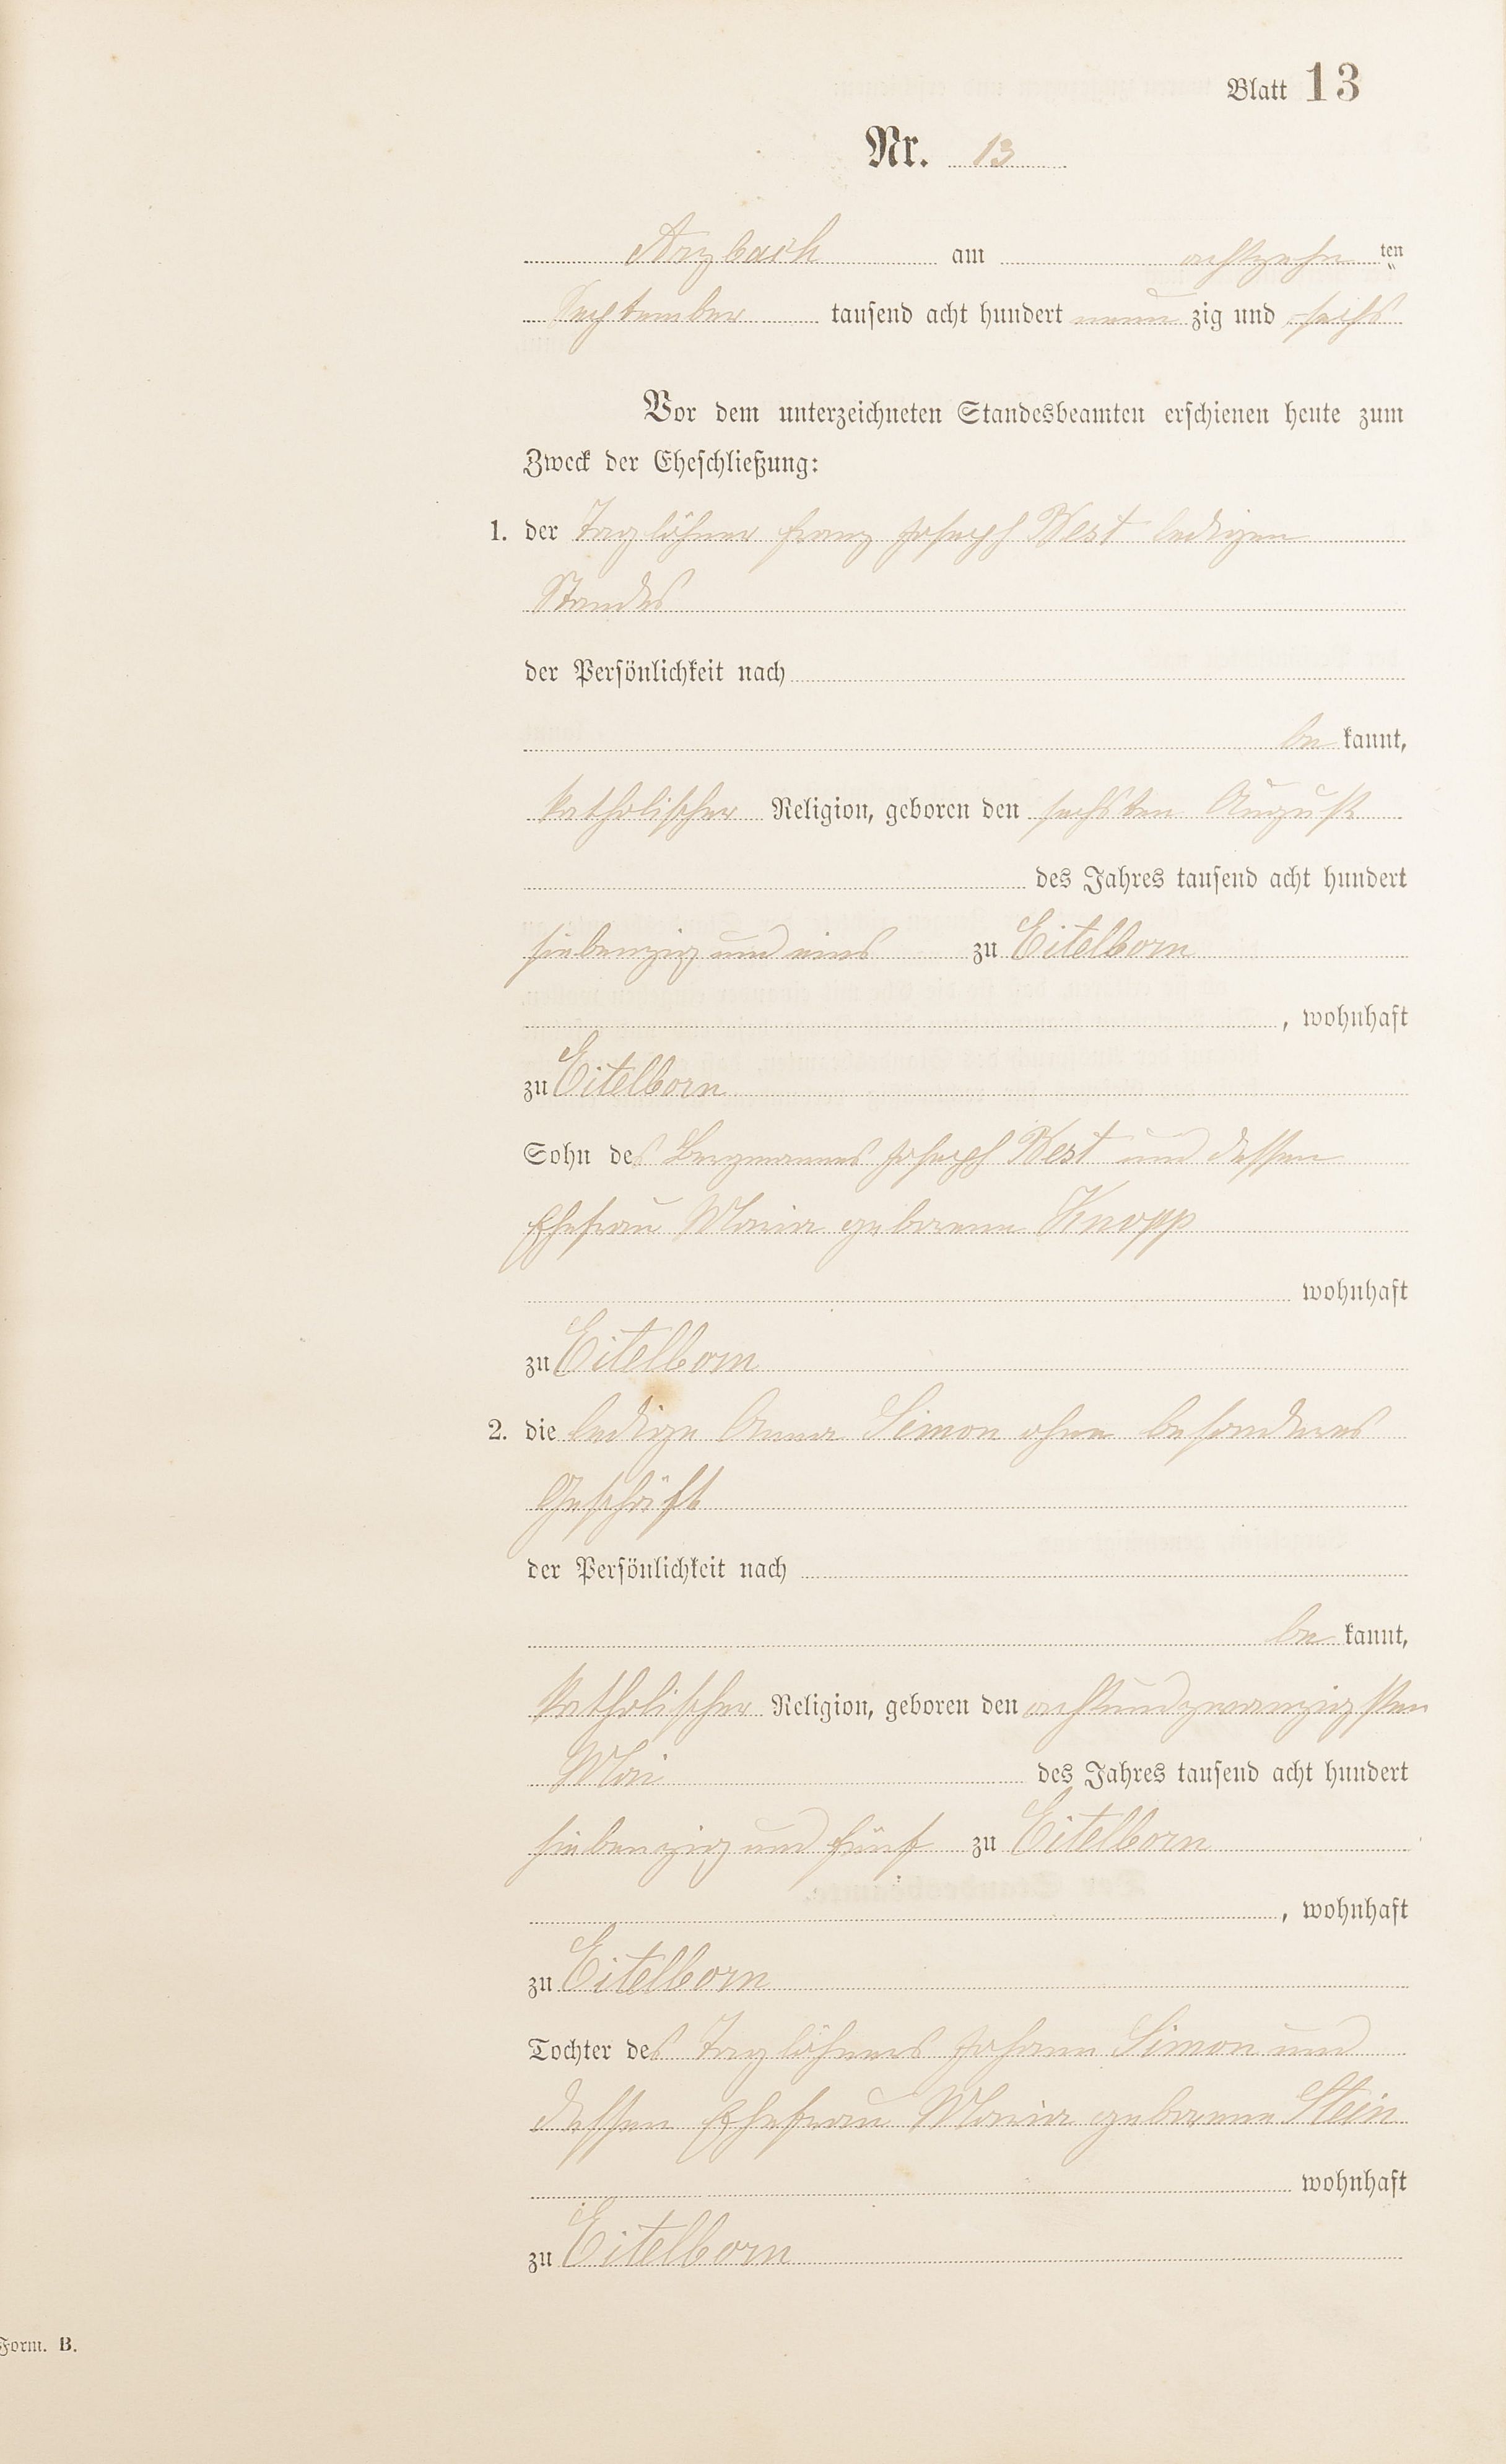 Blatt 13
Nr. 13
Arzbach am achtzehnten
September tausend acht hundert neunzig und sechs
Vor dem unterzeichneten Standesbeamten erschienen heute zum
Zweck der Eheschließung:
1. der Taglöhner Franz Joseph Best ledigen
Standes
der Persönlichkeit nach
bekannt,
katholischer Religion, geboren den sechsten August
des Jahres tausend acht hundert
siebenzig und eins zu Eitelborn
, wohnhaft
zu Eitelborn
Sohn des Bergmannes Joseph Best und dessen
Ehefrau Maria geborene Knopp
wohnhaft
zu Eitelborn
2. die ledige Anna Simon ohne besonderes
Geschäft
der Persönlichkeit nach
bekannt,
katholischer Religion, geboren den achtundzwanzigsten
Mai des Jahres tausend acht hundert
siebenzig und fünf zu Eitelborn
, wohnhaft
zu Eitelborn
Tochter des Taglöhners Johann Simon und
dessen Ehefrau Maria geborene Stein
wohnhaft
zu Eitelborn
Form. B.